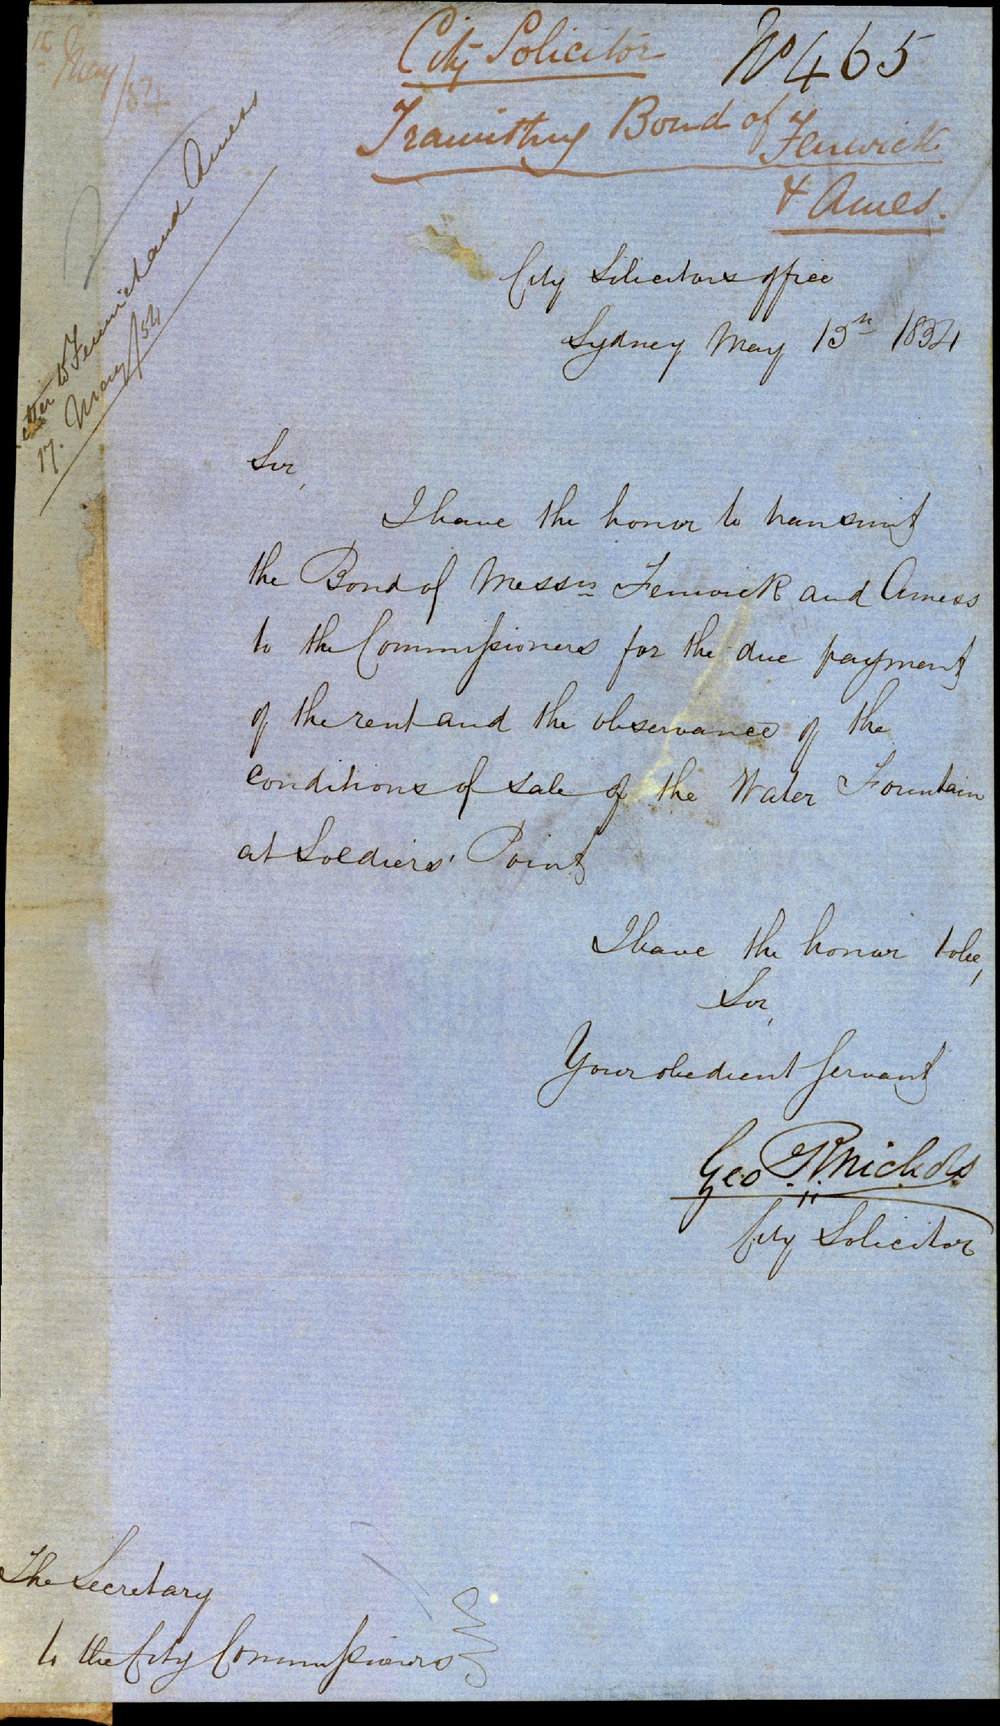 15 May/54
City Solicitor
No 465
Transmitting Bond of Fenwick
& Ames.
Letter to Fenwick and Amess
17. May/54
City Solicitors office
Sydney May 15th 1854
Sir,
I have the honor to transmit
the Bond of Messrs Fenwick and Amess
to the Commissioners for the due payment
of the rent and the observance of the
conditions of sale of the Water Fountain
at Soldiers' Point
I have the honor to be,
Sir,
Your obedient Servant
Geo. R. Nichols
City Solicitor
The Secretary
to the City Commissioners